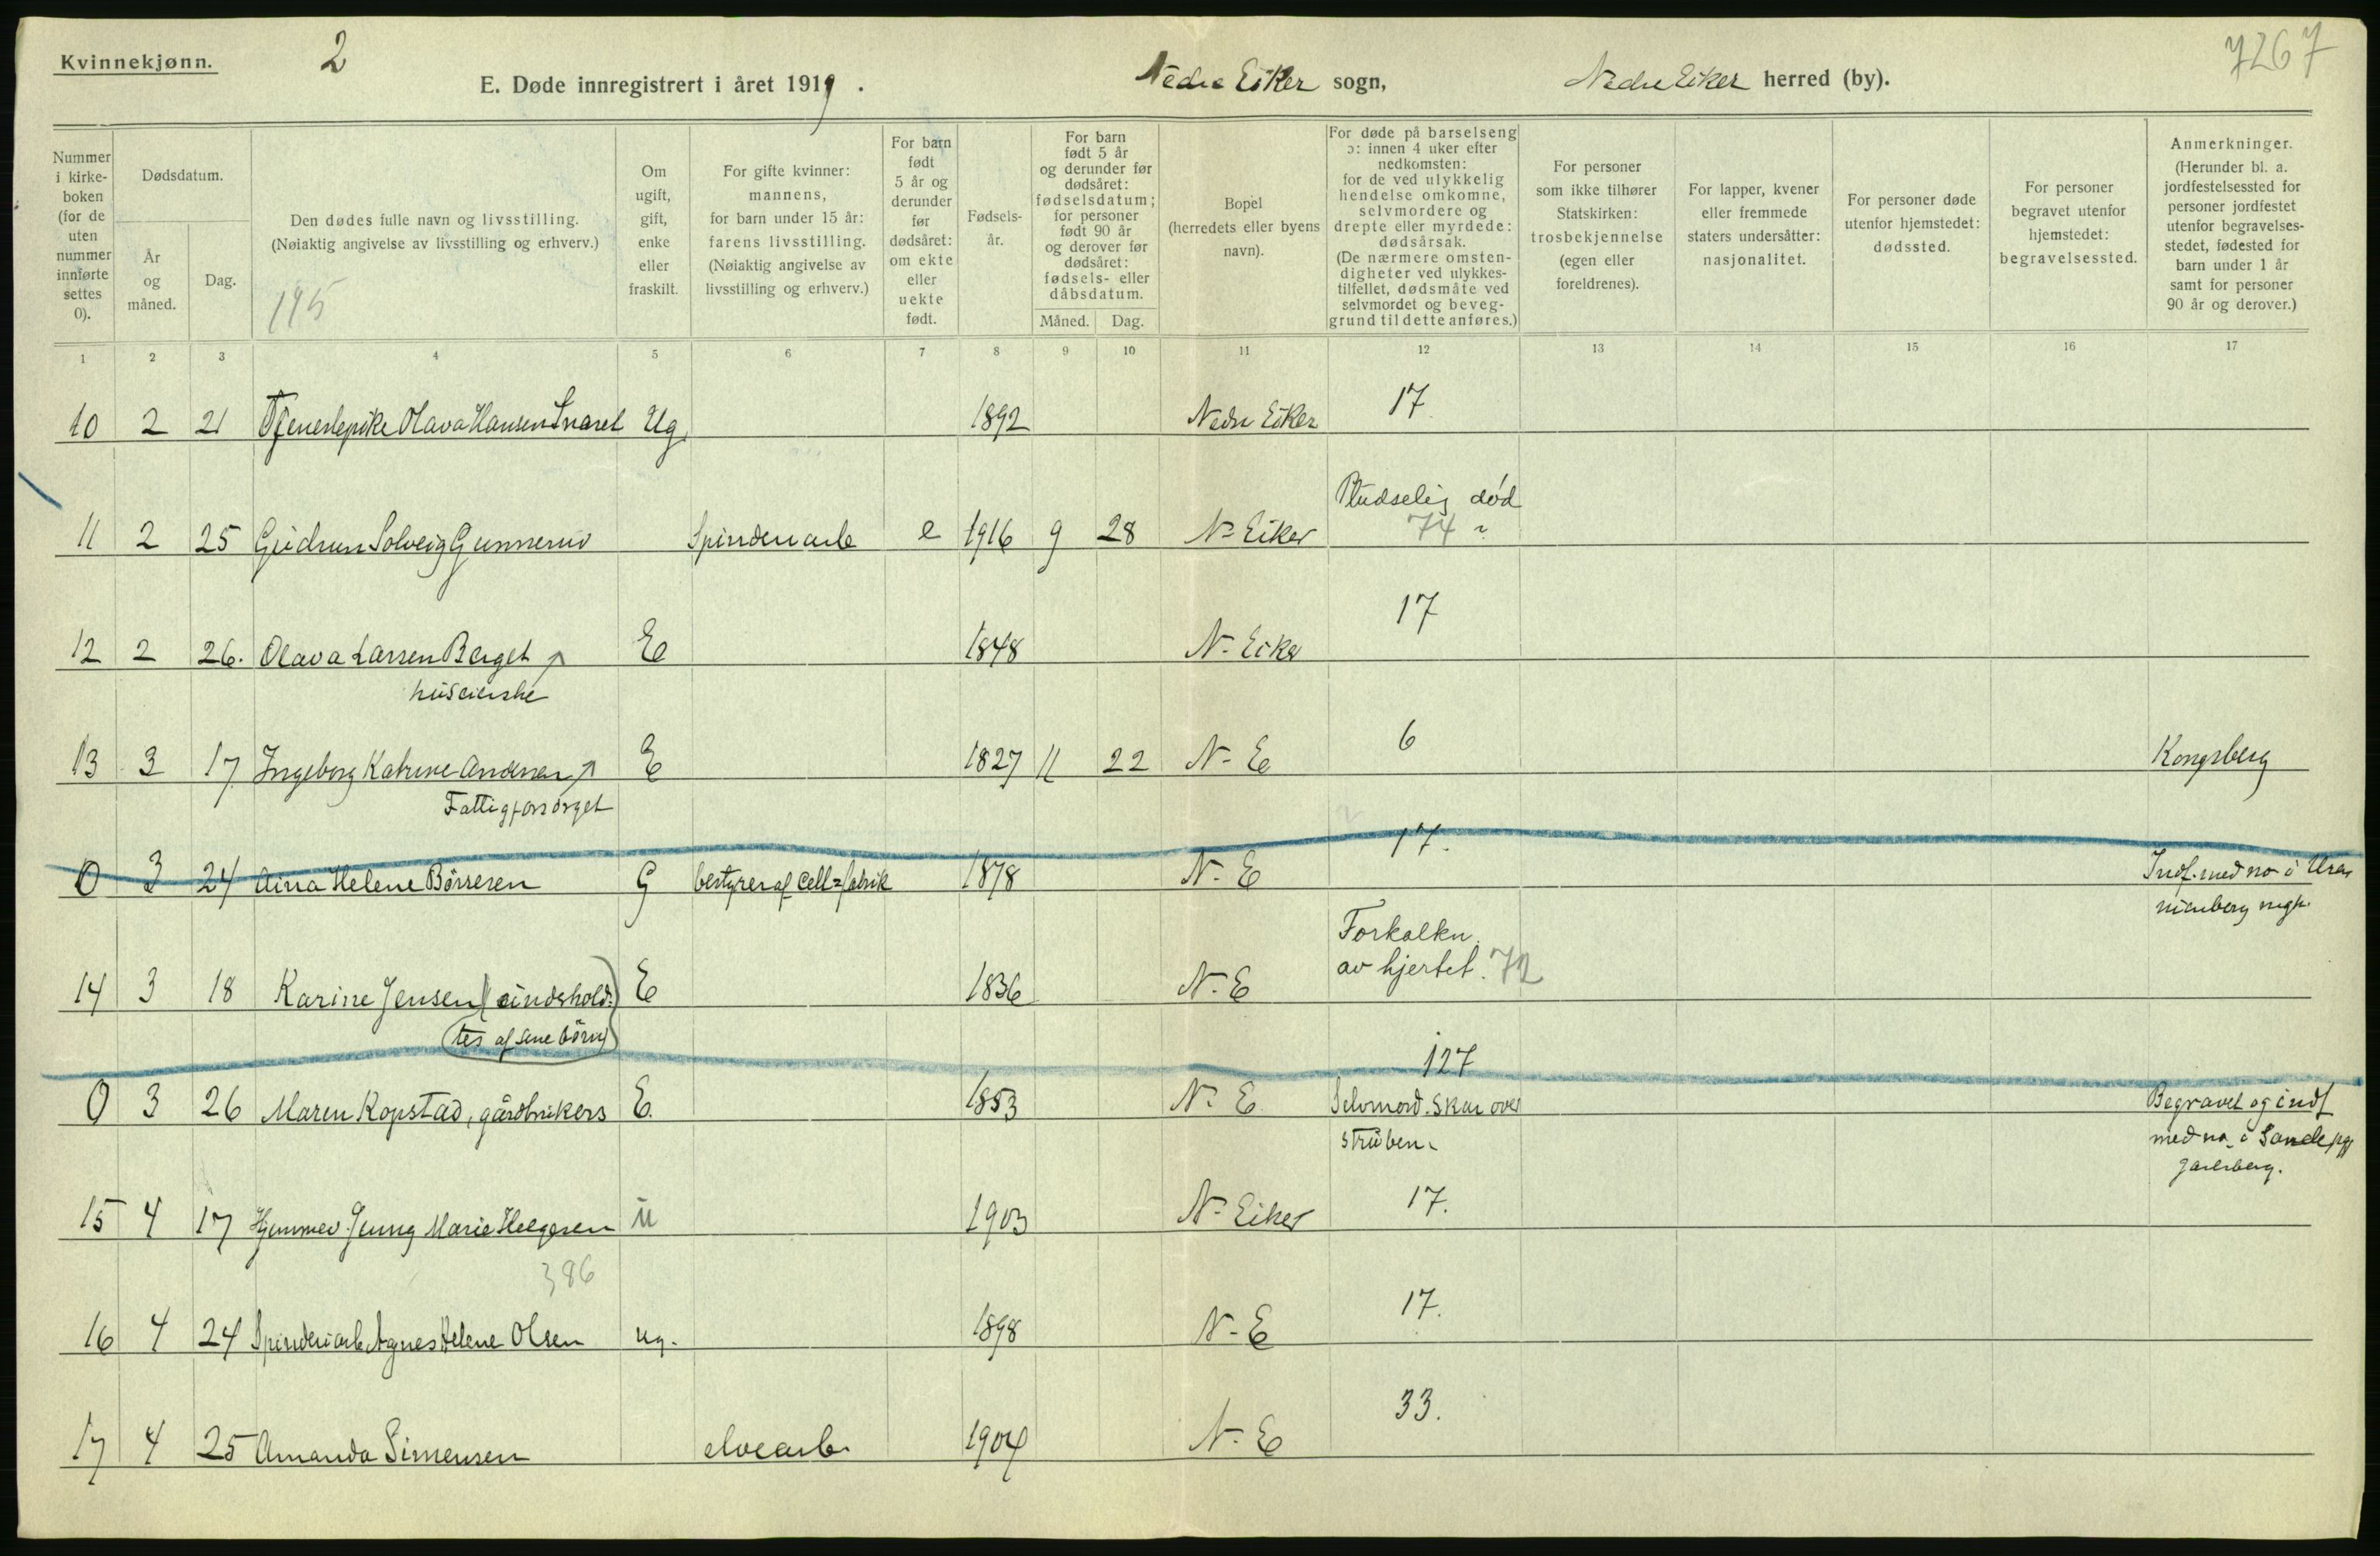 7267
Kvinnekjønn.
2
E. Døde innregistrert i året 1919.
Nedre Eiker sogn,
Nedre Eiker herred (by).
Nummer i kirke-boken (for de uten nummer innførte settes 0).
Dødsdatum.
År og måned.
Dag.
Den dødes fulle navn og livsstilling.
(Nøiaktig angivelse av livsstilling og erhverv.)
195
Om ugift, gift, enke eller fraskilt.
For gifte kvinner: mannens, for barn under 15 år: farens livsstilling. (Nøiaktig angivelse av livsstilling og erhverv.)
For barn født 5 år og derunder før dødsåret: om ekte eller uekte født.
Fødsels-år.
For barn født 5 år og derunder før dødsåret: fødselsdatum; for personer født 90 år og derover før dødsåret: fødsels- eller dåbsdatum.
Måned.
Dag.
Bopel (herredets eller byens navn).
For døde på barselseng ɔ: innen 4 uker efter nedkomsten: for de ved ulykkelig hendelse omkomne, selvmordere og drepte eller myrdede: dødsårsak. (De nærmere omsten-digheter ved ulykkes-tilfellet, dødsmåte ved selvmordet og beveg-grund til dette anføres.)
For personer som ikke tilhører Statskirken: trosbekjennelse (egen eller foreldrenes).
For lapper, kvener eller fremmede staters undersåtter: nasjonalitet.
For personer døde utenfor hjemstedet: dødssted.
For personer begravet utenfor hjemstedet: begravelsessted.
Anmerkninger. (Herunder bl. a. jordfestelsessted for personer jordfestet utenfor begravelses-stedet, fødested for barn under 1 år samt for personer 90 år og derover.)
1 2 3 4 5 6 7 8 9 10 11 12 13 14 15 16 17
10 2 21 Tjenestepike Olava Hansen Ug. 1892 Nedre Eiker 17.
11 2 25 Gudrun Solveig Gunnerud Spinderiarb e 1916 9 28 N. Eiker Pludselig død
74
12 2 26. Olava Larsen Berget E 1848 N. Eiker 17
huseierske
13 3 17 Ingeborg Katrine Andersen E 1827 11 22 N. E 6 Kongsberg
Fattigforsørget
0 3 24 Aina Helene Börresen G bestyrer af Cell=fabrik 1878 N. E 17. Indf. med no i Ura
nienborg mgh.
14 3 18 Karine Jensen (underhold: E 1836 N. E Forkalkn.
av hjertet. 72
tes af sine börn)
0 3 26 Maren Kopstad, gårdbrukers E. 1853 N. E 127
Selvmord. Skar over
strüben.
Begravet og indf
med no. i Sande pgj
Jarlsberg.
15 4 17 Hjemmev. Jenny Marie Helgesen u 1903 N. Eiker 17.
386
16 4 24 Spinderiarb. Agnes Helene Olsen ug. 1898 N. E 17.
17 4 25 Amanda Simensen elvearb. 1904 N. E 33.